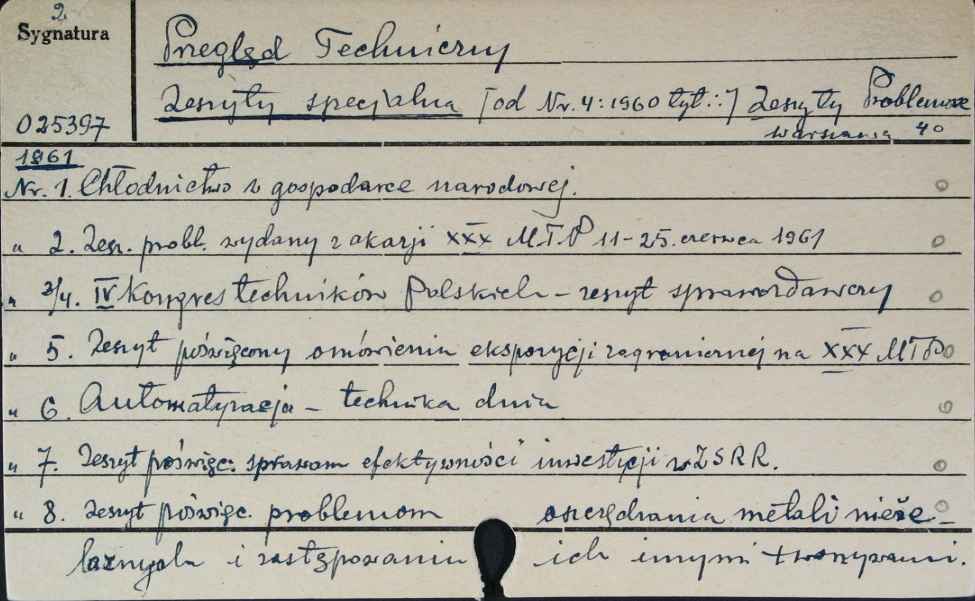 2
Sygnatura
Przegląd Techniczny
Zeszyty specjalne [od Nr. 4:1960 tyt.:] Zeszyty Problemowe
025397
Warszawa 40
1961
Nr. 1. Chłodnictwo w gospodarce narodowej.
" 2. Zesz. probl. wydany z okazji XXX MTP 11-25. czerwca 1961
" 3/4. IV Kongres techników Polskich - zeszyt sprawozdawczy
" 5. Zeszyt poświęcony omówieniu ekspozycji zagranicznej na XXX MTP
" 6. Automatyzacja - technika dnia
" 7. Zeszyt poświęc. sprawom efektywności inwestycji w ZSRR.
" 8. Zeszyt poświęc. problemom oszczędzania metali nieże-
laznych i zastępowaniu ich innymi tworzywami.